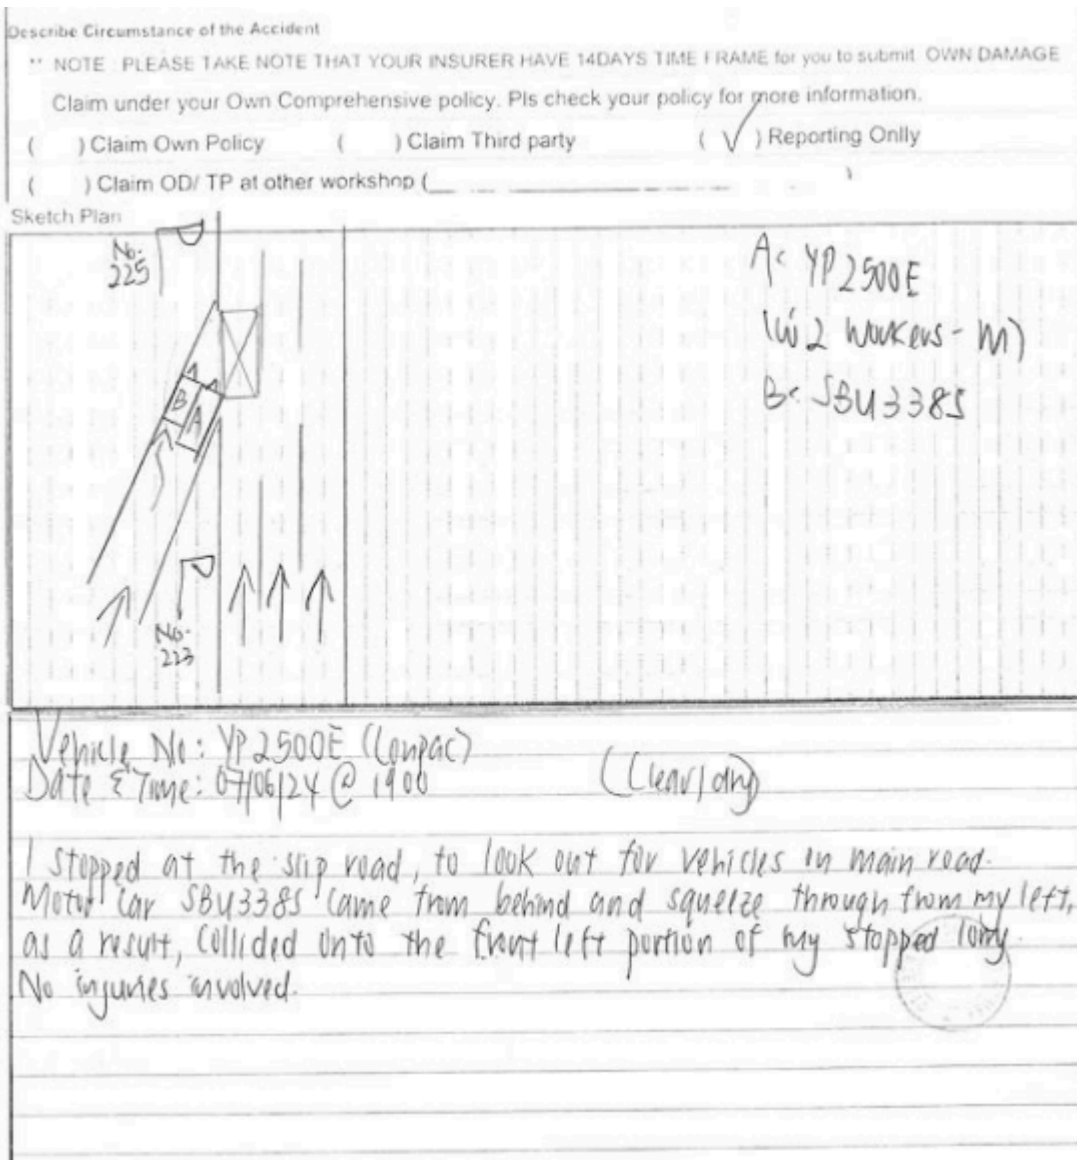 Describe Circumstance of the Accident
** NOTE : PLEASE TAKE NOTE THAT YOUR INSURER HAVE 14DAYS TIME FRAME for you to submit OWN DAMAGE
Claim under your Own Comprehensive policy. Pls check your policy for more information.
( ) Claim Own Policy ( ) Claim Third party ( √ ) Reporting Onlly
( ) Claim OD/ TP at other workshop ( )
Sketch Plan
No. 225
A< YP2500E
(w 2 workers - M)
B< SBU3385
B
A
No. 223
Vehicle No: YP2500E (Lonpac)
Date & Time: 07/06/24 @ 1900 (Clear/dry)
I stopped at the slip road, to look out for vehicles on main road.
Motor car SBU3385 came from behind and squeeze through from my left,
as a result, collided onto the front left portion of my stopped lorry.
No injuries involved.